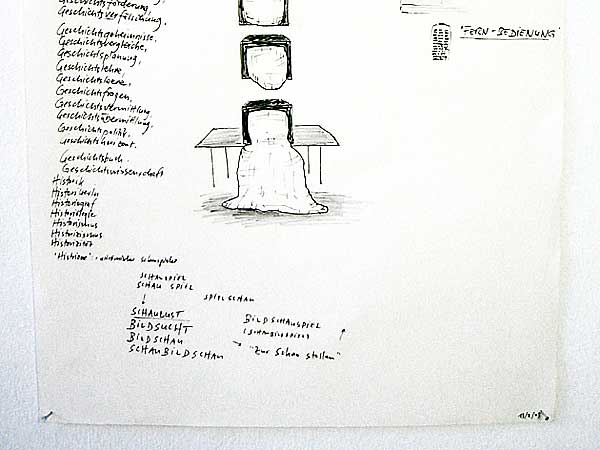 Geschichtsförderung,
Geschichtsverfälschung.
Geschichtsgeheimnisse.
Geschichtsvergleiche,
Geschichtsplanung,
Geschichtslehre,
Geschichtsleere,
Geschichtsfragen,
Geschichtsvermittlung
Geschichtsübermittlung.
Geschichtspolitik.
Geschichtsbuch.
Geschichtswissenschaft
Historik
Historikerin
Historiograf
Historiologie
Historismus
Historizismus
Historizität
"Histrione":
SCHAUSPIEL
SCHAU SPIEL
SPIEL SCHAU
SCHAULUST
BILDSUCHT
BILDSCHAU
SCHAUBILDSCHAU
BILDSCHAUSPIEL
(SCHAUBILDSPIEL)
→ "Zur Schau stellen"
"FERN-BEDIENUNG"